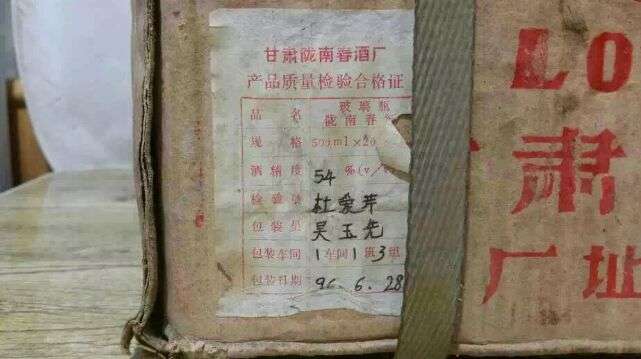 甘肃陇南春酒厂
产品质量检验合格证
品 名 玻璃瓶
陇南春
规 格 500ml×20
酒精度 54 %(v/v
检验员
包装员 吴玉先
包装车间 1车间1班3组
包装日期 96.6.28
LO
肃
厂址